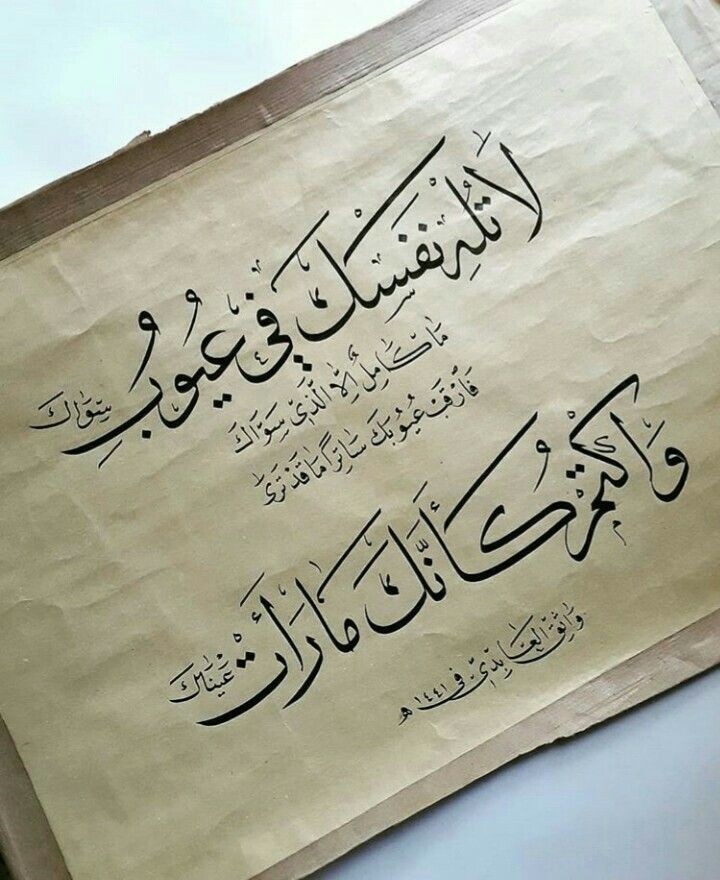 لَا تُلْهِ نَفْسَكَ فِي عُيُوبِ سِوَاكَ
مَا كَامِلٌ إِلَّا الَّذِي سَوَّاكَ
فَارْقُبْ عُيُوبَكَ سَاتِرًا مَا قَدْ تَرَى
وَاكْتُمْ كَأَنَّكَ مَا رَأَتْ عَيْنَاكَ
وَاثِق العَابِدِيّ فِي ١٤٤١هـ